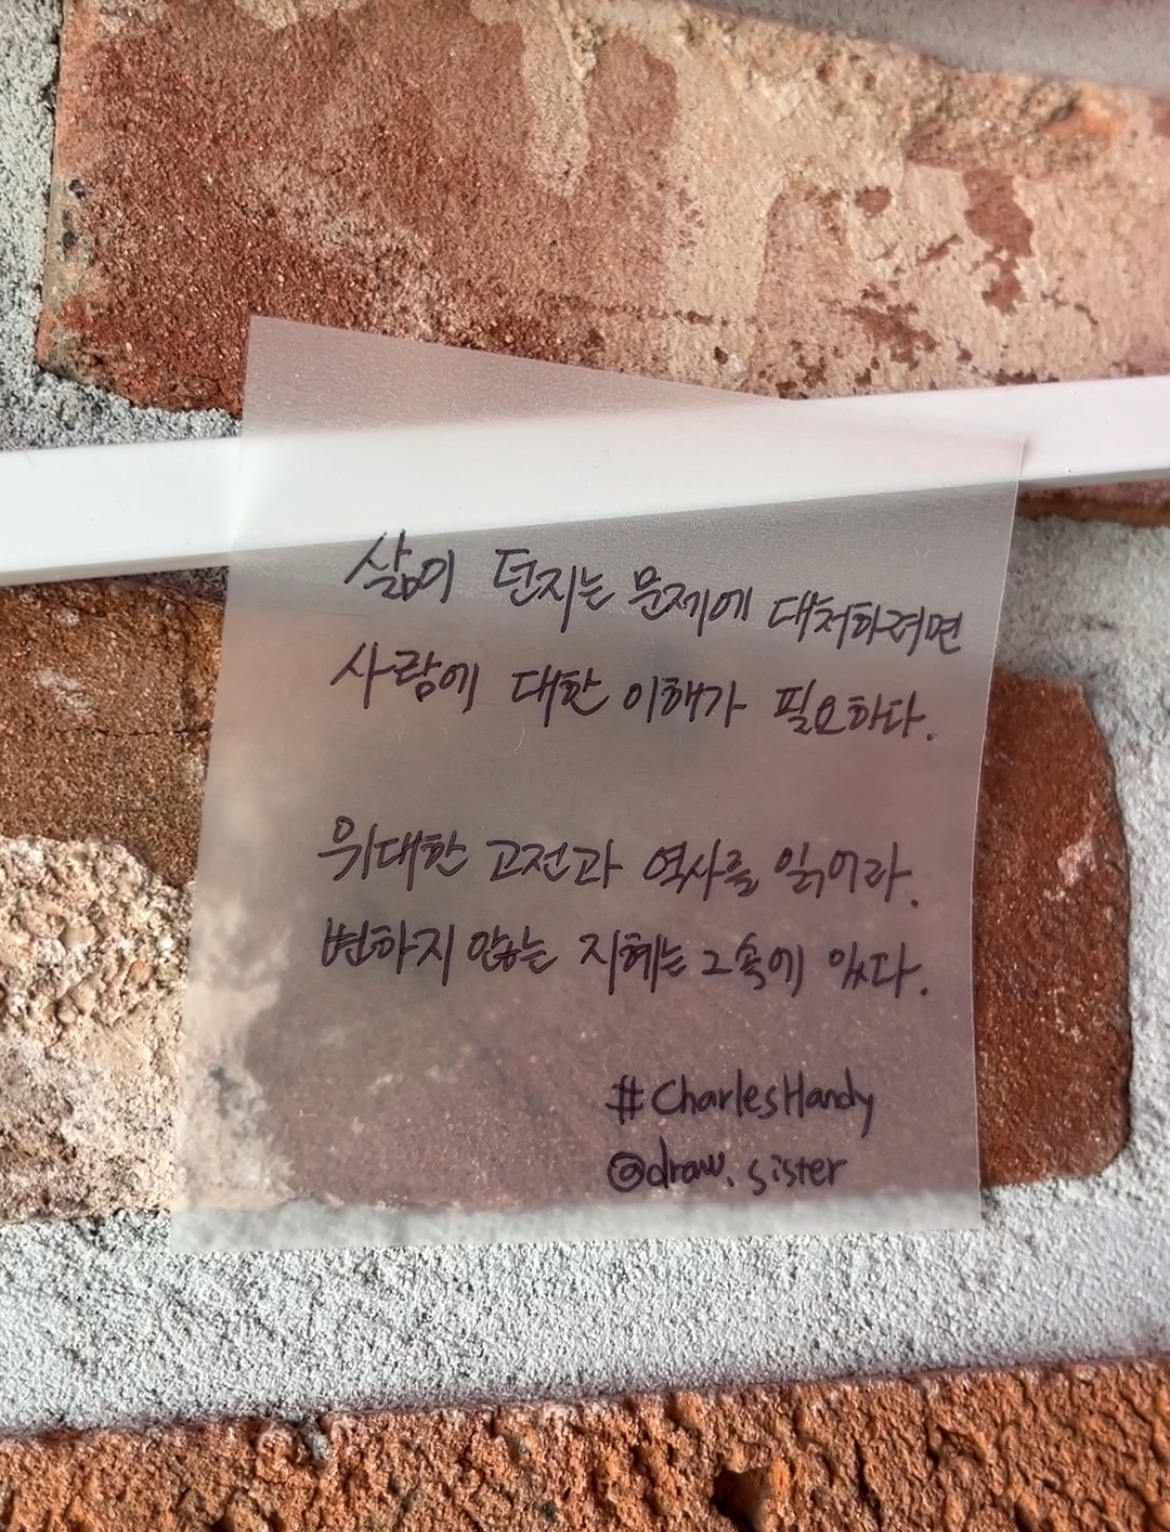 삶이 던지는 문제에 대처하려면
사람에 대한 이해가 필요하다.
위대한 고전과 역사를 읽어라.
변하지 않는 지혜는 그 속에 있다.
#CharlesHandy
@draw.sister